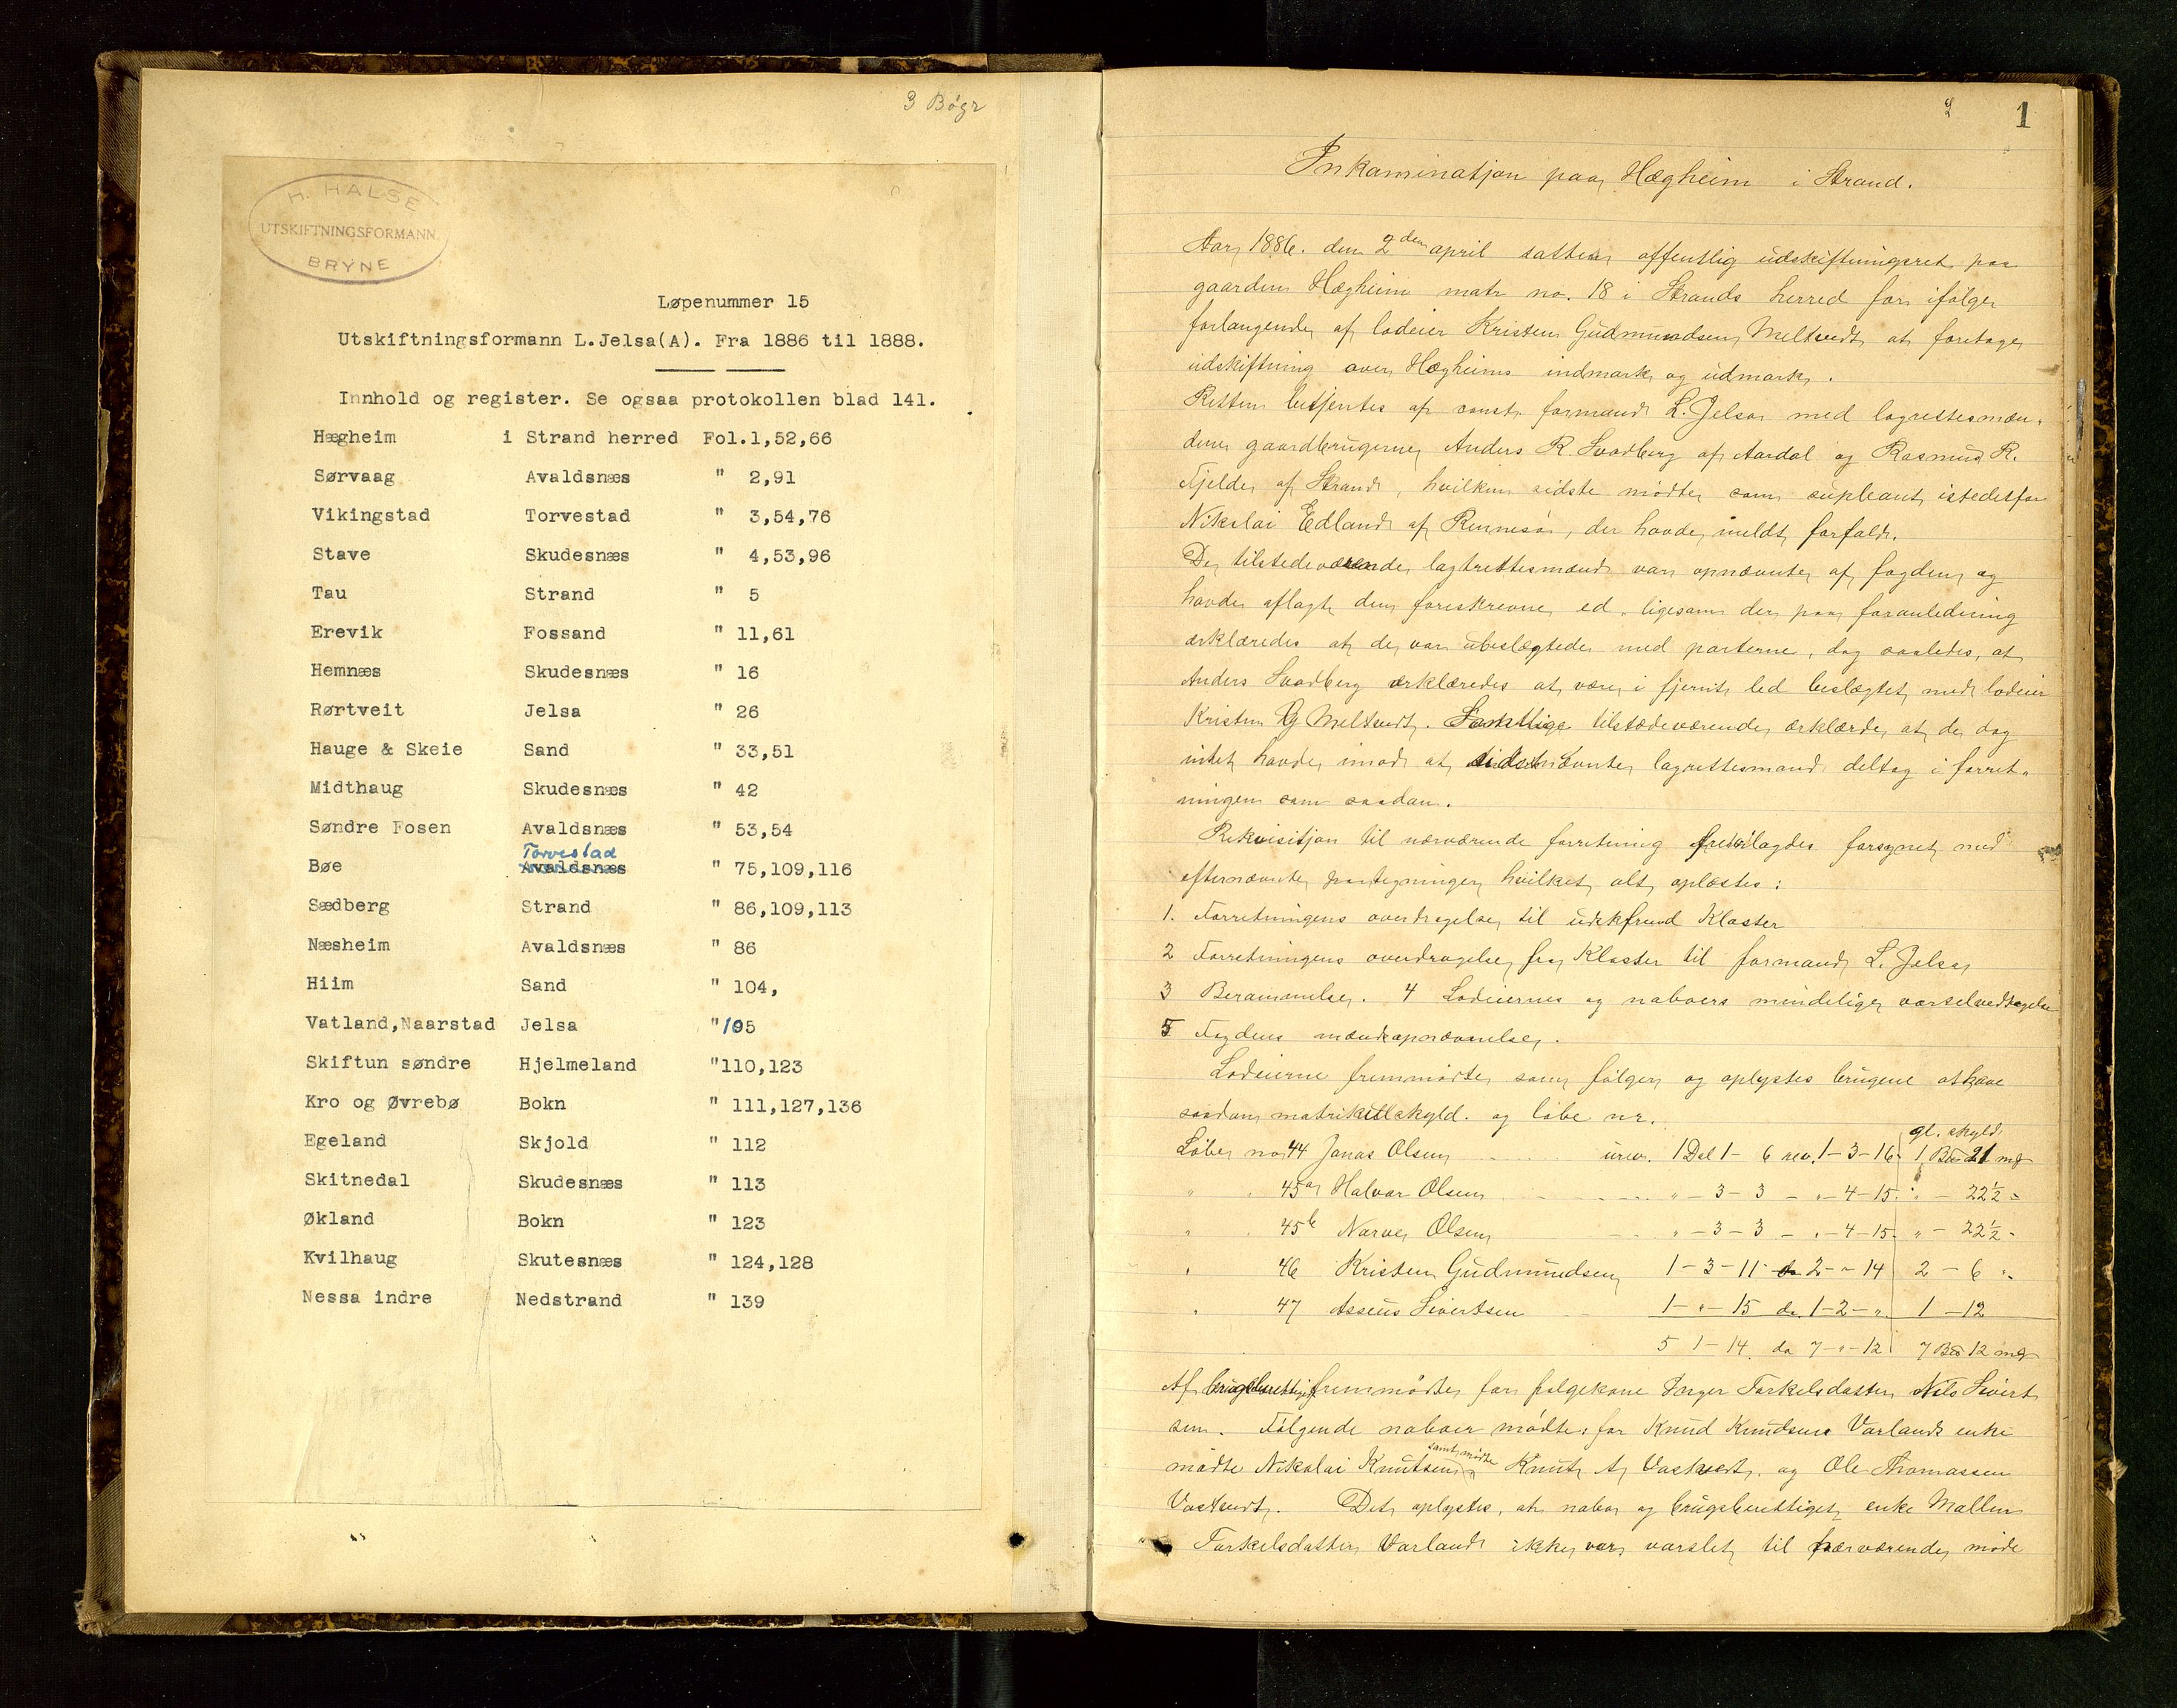 3 Bögr
H. HALSE
UTSKIFTNINGSFORMANN
BRYNE
Løpenummer 15
Utskiftningsformann L.Jelsa(A). Fra 1886 til 1888.
Innhold og register. Se ogsaa protokollen blad 141.
Hægheim i Strand herred Fol.1,52,66
Sørvaag Avaldsnæs " 2,91
Vikingstad Torvestad " 3,54,76
Stave Skudesnæs " 4,53,96
Tau Strand " 5
Erevik Fossand " 11,61
Hemnæs Skudesnæs " 16
Rørtveit Jelsa " 26
Hauge & Skeie Sand " 33,51
Midthaug Skudesnæs " 42
Søndre Fosen Avaldsnæs " 53,54
Torvestad
Bøe Avaldsnæs " 75,109,116
Sædberg Strand " 86,109,113
Næsheim Avaldsnæs " 86
Hiim Sand " 104,
Vatland,Naarstad Jelsa "105
Skiftun søndre Hjelmeland "110,123
Kro og Øvrebø Bokn " 111,127,136
Egeland Skjold " 112
Skitnedal Skudesnæs " 113
Økland Bokn " 123
Kvilhaug Skutesnæs " 124,128
Nessa indre Nedstrand " 139
1
Inkaminatjon paa Hægheim i Strand.
Aar 1886. den 2den april sattes offentlig udskiftningsret paa
gaarden Hægheim matr no. 18 i Strands herred for ifølge
forlangende af lodeier Kristen Gudmundsen Meltvedt at foretage
udskiftning over Hægheims indmark og udmark.
Retten betjentes af const. formand L. Jelsa med lagrettesmæn-
dene gaardbrugerne Anders R. Svadberg af Aardal og Rasmus R.
Fjelde af Strand, hvilken sidste mødte som supleant istedetfor
Nikolai Edland af Rennesø, der havde meldt forfald.
De tilstedeværende lagrettesmænd var opnævnte af fogden og
havde aflagt den foreskrevne ed, ligesom der paa foranledning
erklæredes at de var ubeslægtede med parterne, dog saaledes, at
Anders Svadberg erklæredes at være i fjernt led beslægtet med lodeier
Kristen G Meltvedt. Samtlige tilstædeværende erklærde, at de dog
intet havde imod at sidstnævnte lagrettesmand deltog i forret-
ningen som saadan.
Rekvisitjon til nærværende forretning fremlagdes forsynet med
efternævnte paategninger, hvilket alt oplæstes:
1. Forretningens overdragelse til Kloster
2 Forretningens overdragelse fra Kloster til formand L. Jelsa
3 Berammelse. 4 Lodeiernes og naboers mindelige varselvedtagelse
5 Fogdens mændsopnævnelse.
Lodeierne fremmødte som følger og oplystes brugene at have
saadan matrikulskyld. og løbe nr.
gl. skyld
Løbe no 44 Jonas Olsen urev. 1 Dal 1 - 6 rev. 1-3-16 1 21 mg
" " 45a Halvar Olsen " - 3 - 3 - " - 4 - 15 " - 22½ "
" " 45b Narve Olsen " - 3 - 3 - " - 4 - 15 " - 22½ "
" 46 Kristen Gudmundsen 1 - 3 - 11 do 2 - " - 14 2 - 6 "
" 47 Asseus Sivertsen 1 - " - 15 do 1 - 2 - " 1 - 12
5 1 - 14 do 7 - " - 12 7 12 mg
Af brugsberettige fremmødte for følgekone Inger Torkelsdatter Nils Sivert
sen. Følgende naboer mødte: for Knud Knudsens Varlands enke
samt mødte
mødte Nikolai Knutsen Knut og Ole Thomassen
Det oplystes, at nabo og brugsberettiget enke Mallene
Torkelsdatter Varland ikke var varslet til nærværende møde